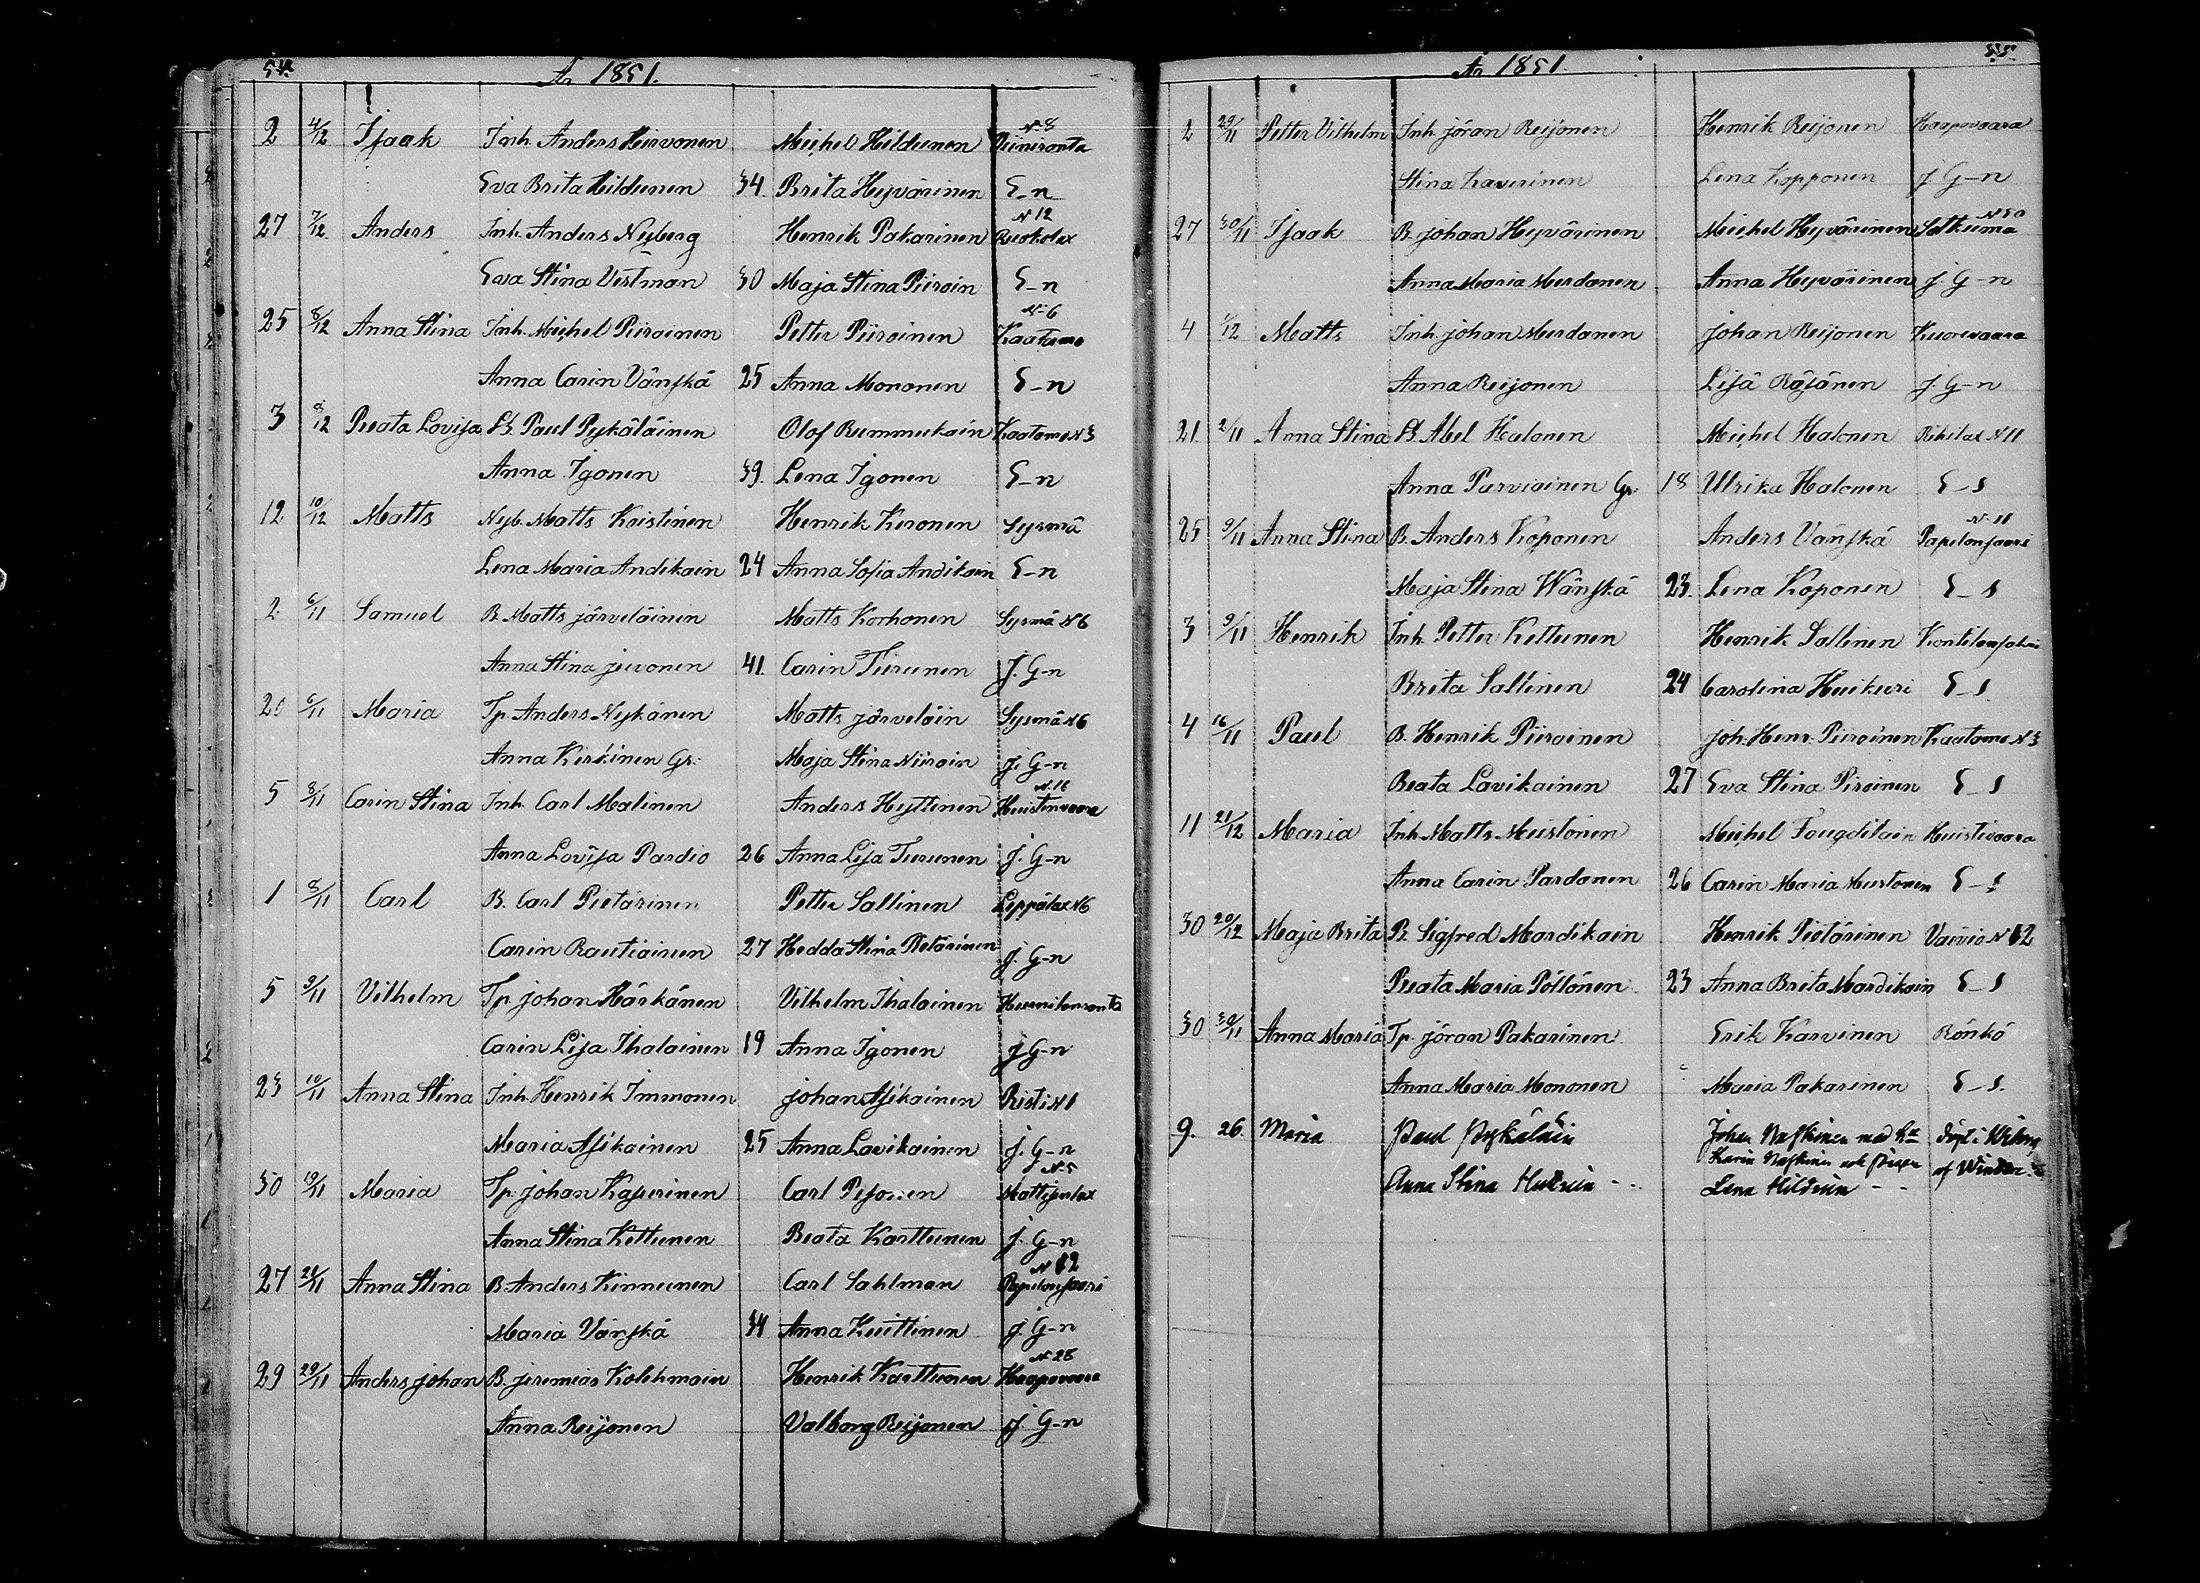 54.
År 1851.
N. 8
2 4/12 Isaak Inh. Anders Hirvonen Michel Hildunen Piimironta
Eva Brita Hildunen 34. Brita Hyvärinen E-n
N 12
27 7/12. Anders Inh. Anders Nyberg Henrik Pakarinen Ruokolax
Eva Stina Vestman 30 Maja Stina Piiroin E-n
N. 6
25 8/12 Anna Stina Inh. Michel Piiroinen Petter Piiroinen Kaatamo
Anna Carin Vänskä 25 Anna Mononen E-n
3 8/12 Beata Lovisa B. Paul Pykäläinen Olof Rummukain Kaatamo N 3
Anna Igonen 39. Lena Igonen E-n
12 10/12 Matts Nyb. Matts Koistinen Henrik Kuronen Sysmä
Lena Maria Andikain 24 Anna Sofia Andikain E-n
2 6/11 Samuel B. Matts järveläinen Matts Korhonen Sysmä N6
Anna Stina juvonen 41. Carin Tiirunen J. G-n
20 6/11 Maria Tp. Anders Nykänen Matts järveläin Sysmä N6
Anna Kirkinen Gr. Maja Stina Niiroin J. G-n
N. 16
5 8/11 Carin Stina Inh. Carl Malinen Anders Hyttinen Kuistinvaara
Anna Lovisa Pardio 26 Anna Lisa Turunen J. G-n
1 8/11 Carl B. Carl Pietärinen Petter Sallinen Leppälax N6
Carin Rautiainen 27 Hedda Stina Pietärinen J. G-n
5 9/11 Vilhelm Tp. johan Härkönen Vilhelm Ihalainen
Carin Lisa Ihalainen 19 Anna Igonen J G-n
23 10/11 Anna Stina Inh. Henrik Immonen johan Asikainen Risti N1
Maria Asikainen 25 Anna Lavikainen J. G-n
N. 5
30 19/11 Maria Tp. johan Kasurinen Carl Pesonen Mattisenlax
Anna Stina Kettunen Beata Karttunen J. G-n
N 12
27 28/11 Anna Stina B. Anders Kinnunen Carl Sahlman Papelonsaari
Maria Vänskä 34 Anna Kuittinen J. G-n
N. 28
29 29/11 Anders johan B. jeremias Kolehmain Henrik Karttunen Haapovaara
Anna Reijonen Valborg Reijonen J. G-n
55.
År 1851.
2 29/11 Petter Vilhelm Inh. jöran Reijonen Henrik Reijonen Haapovaara
Stina Kaurinen Lena Kopponen J G-n
N 50
27 30/11 Isaak B. johan Hyvärinen Michel Hyvärinen Sotkuma
Anna Maria Murdonen Anna Hyvärinen J. G-n
4 1/12 Matts Inh. johan Murdonen johan Reijonen Kuorevaara
Anna Reijonen Lisa Räsänen J. G-n
21. 2/11 Anna Stina B. Abel Halonen Michel Halonen Rihilax N 11
Anna Parviainen Gr. 18 Ulrika Halonen E-s
N. 11
25 9/11 Anna Stina B. Anders Koponen Anders Vänskä Papelonsaari
Maja Stina Wänskä 23. Lena Koponen E-s
3 9/11 Henrik Inh. Petter Kettunen Henrik Sallinen Kontilonsalmi
Brita Sallinen 24 Carolina Huikuri E-s
4 16/11 Paul B. Henrik Piiroinen joh. Henr. Piiroinen Kaatamo N 3
Beata Lavikainen 27 Eva Stina Piroinen E-s
11 21/12 Maria Inh. Matts Mustonen Michel Fougdilain Kuistivaara
Anna Carin Pardanen 26 Carin Maria Mustonen E-s
30 20/12 Maja Brita B. Sigfred Mardikain Henrik Pietärinen Vaivio N 12
Beata Maria Pöllönen 23 Anna Brita Mardikain E-s
30 30/11 Anna Maria Tp. jöran Pakarinen Erik Karvinen Rönkö
Anna Maria Mononen Maria Pakarinen E-s.
9. 26. Maria Paul Pyskäläin Johan Naskinen med
Karin Naskinen och
Anna Stina Lena Hildein